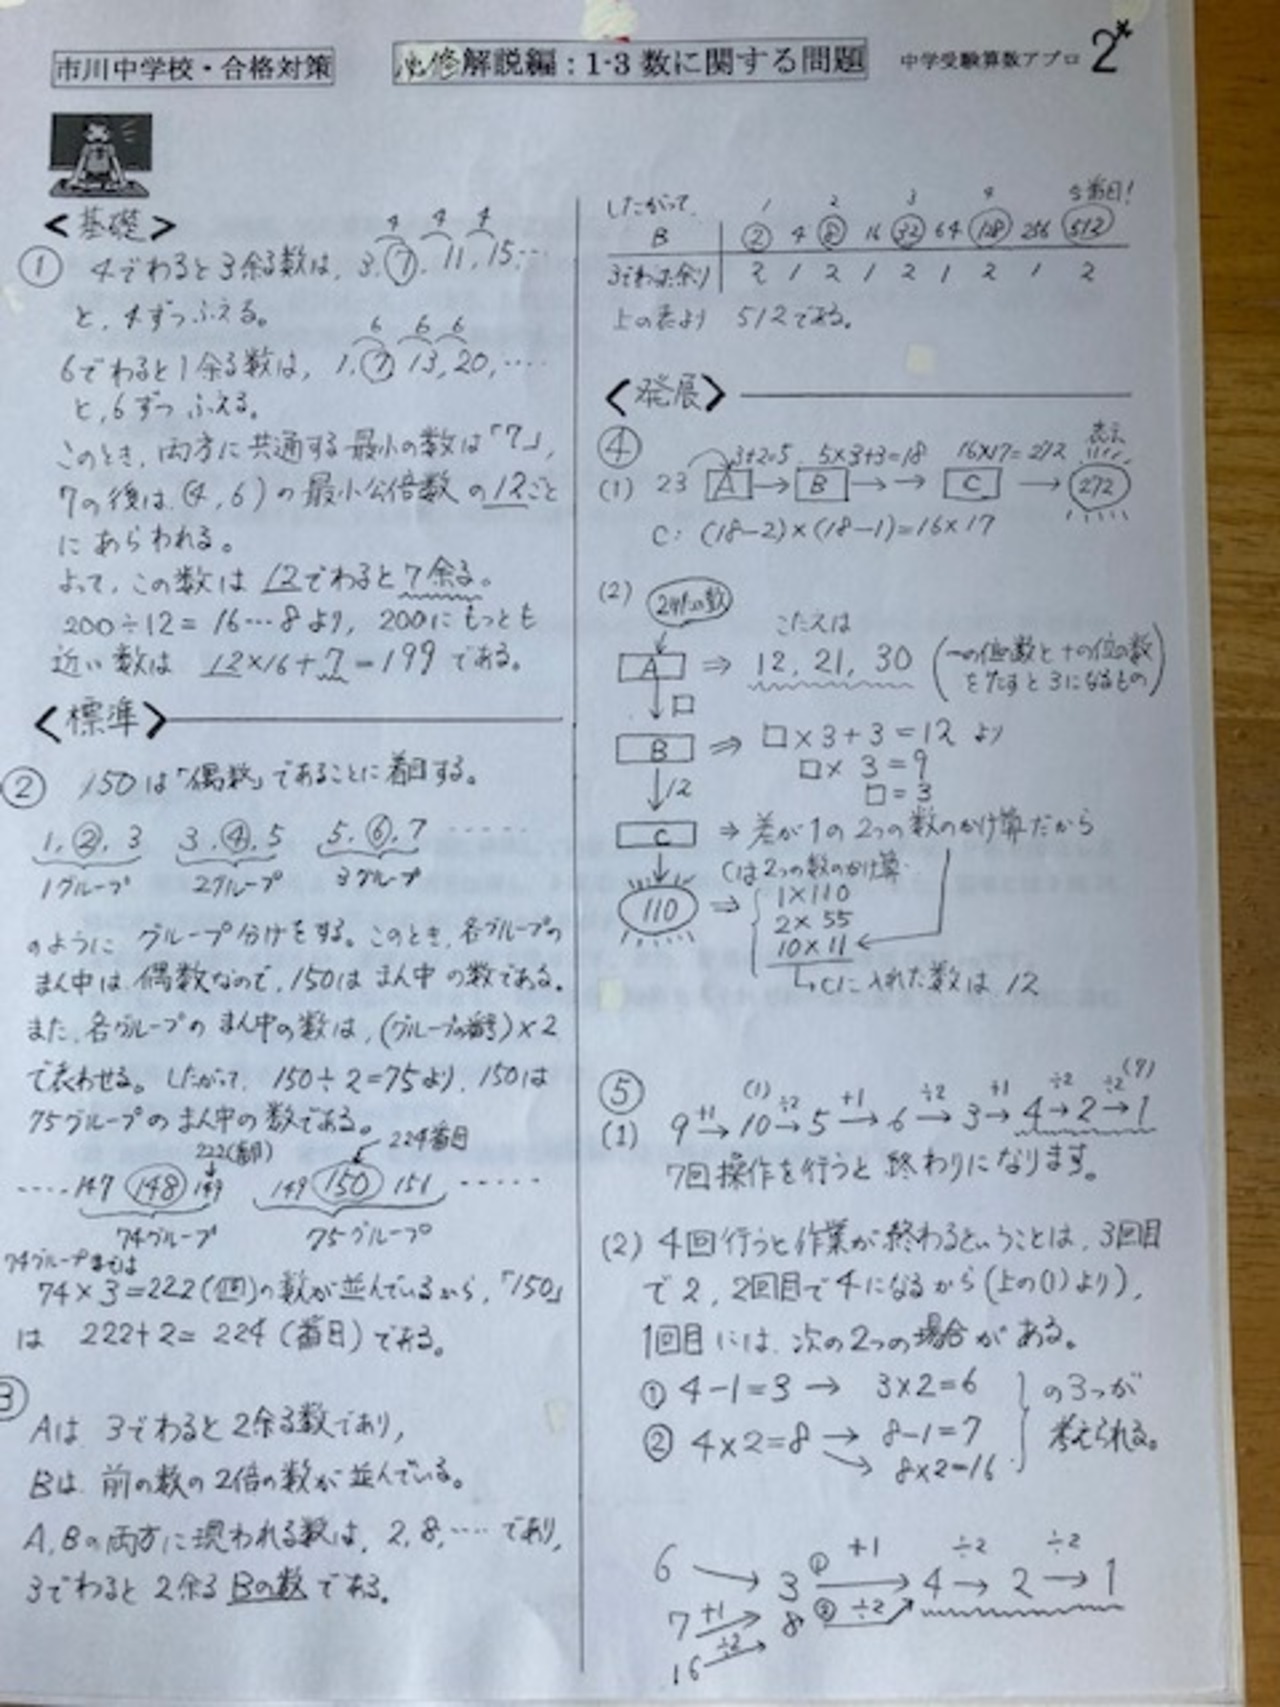 市川中学校・合格対策
必修解説編：1-3 数に関する問題
中学受験算数アプロ 2*
<基礎>
① 4でわると3余る数は、3, 7, 11, 15, …
4 4 4
と、4ずつふえる。
6 6 6
6でわると1余る数は、1, 7, 13, 20, ‥‥
と、6ずつふえる。
このとき、両方に共通する最小の数は「7」、
7の後は、(4, 6)の最小公倍数の12ごと
にあらわれる。
よって、この数は 12でわると7余る。
200÷12=16…8より、200にもっとも
近い数は 12×16+7=199 である。
<標準>
② 150は「偶数」であることに着目する。
1, ②, 3 3, ④, 5 5, ⑥, 7 ‥‥‥
1グループ 2グループ 3グループ
のようにグループ分けをする。このとき、各グループの
まん中は偶数なので、150はまん中の数である。
また、各グループのまん中の数は、(グループの番号)×2
で表わせる。したがって、150÷2=75より、150は
75グループのまん中の数である。
222(番目) 224番目
‥‥147 148 149 149 150 151 ‥‥‥
74グループ 75グループ
74グループまでは
74×3=222(個)の数が並んでいるから、「150」
は 222+2=224(番目)である。
③
Aは 3でわると2余る数であり、
Bは 前の数の2倍の数が並んでいる。
A, Bの両方に現われる数は、2, 8, ‥‥であり、
3でわると2余るBの数である。
したがって、 1 2 3 4 5番目!
B 2 4 8 16 32 64 128 256 512
3でわった余り 2 1 2 1 2 1 2 1 2
上の表より 512である。
<発展>
④
3+2=5 5×3+3=18 16×17=272 表示
(1) 23 A → B → → C → 272
C: (18-2)×(18-1)=16×17
(2) 2ケタの数
こたえは
A ⇒ 12, 21, 30 (一の位の数と十の位の数
をたすと3になるもの)
□
B ⇒ □×3+3=12 より
□×3=9
□=3
12
C ⇒ 差が1の2つの数のかけ算だから
Cは2つの数のかけ算
110 ⇒ 1×110
2×55
10×11
Cに入れた数は、12
⑤
(1) 9 +1→ 10 ÷2→ 5 +1→ 6 ÷2→ 3 +1→ 4 ÷2→ 2 ÷2→ 1
(1) (7)
7回操作を行うと終わりになります。
(2) 4回行うと作業が終わるということは、3回目
で2, 2回目で4になるから(上の(1)より)、
1回目には、次の2つの場合がある。
① 4-1=3 → 3×2=6
② 4×2=8 → 8-1=7
8×2=16
の3つが
考えられる。
6 → 3 ① +1→ 4 ÷2→ 2 ÷2→ 1
7 +1→ 8 ② ÷2
16 ÷2